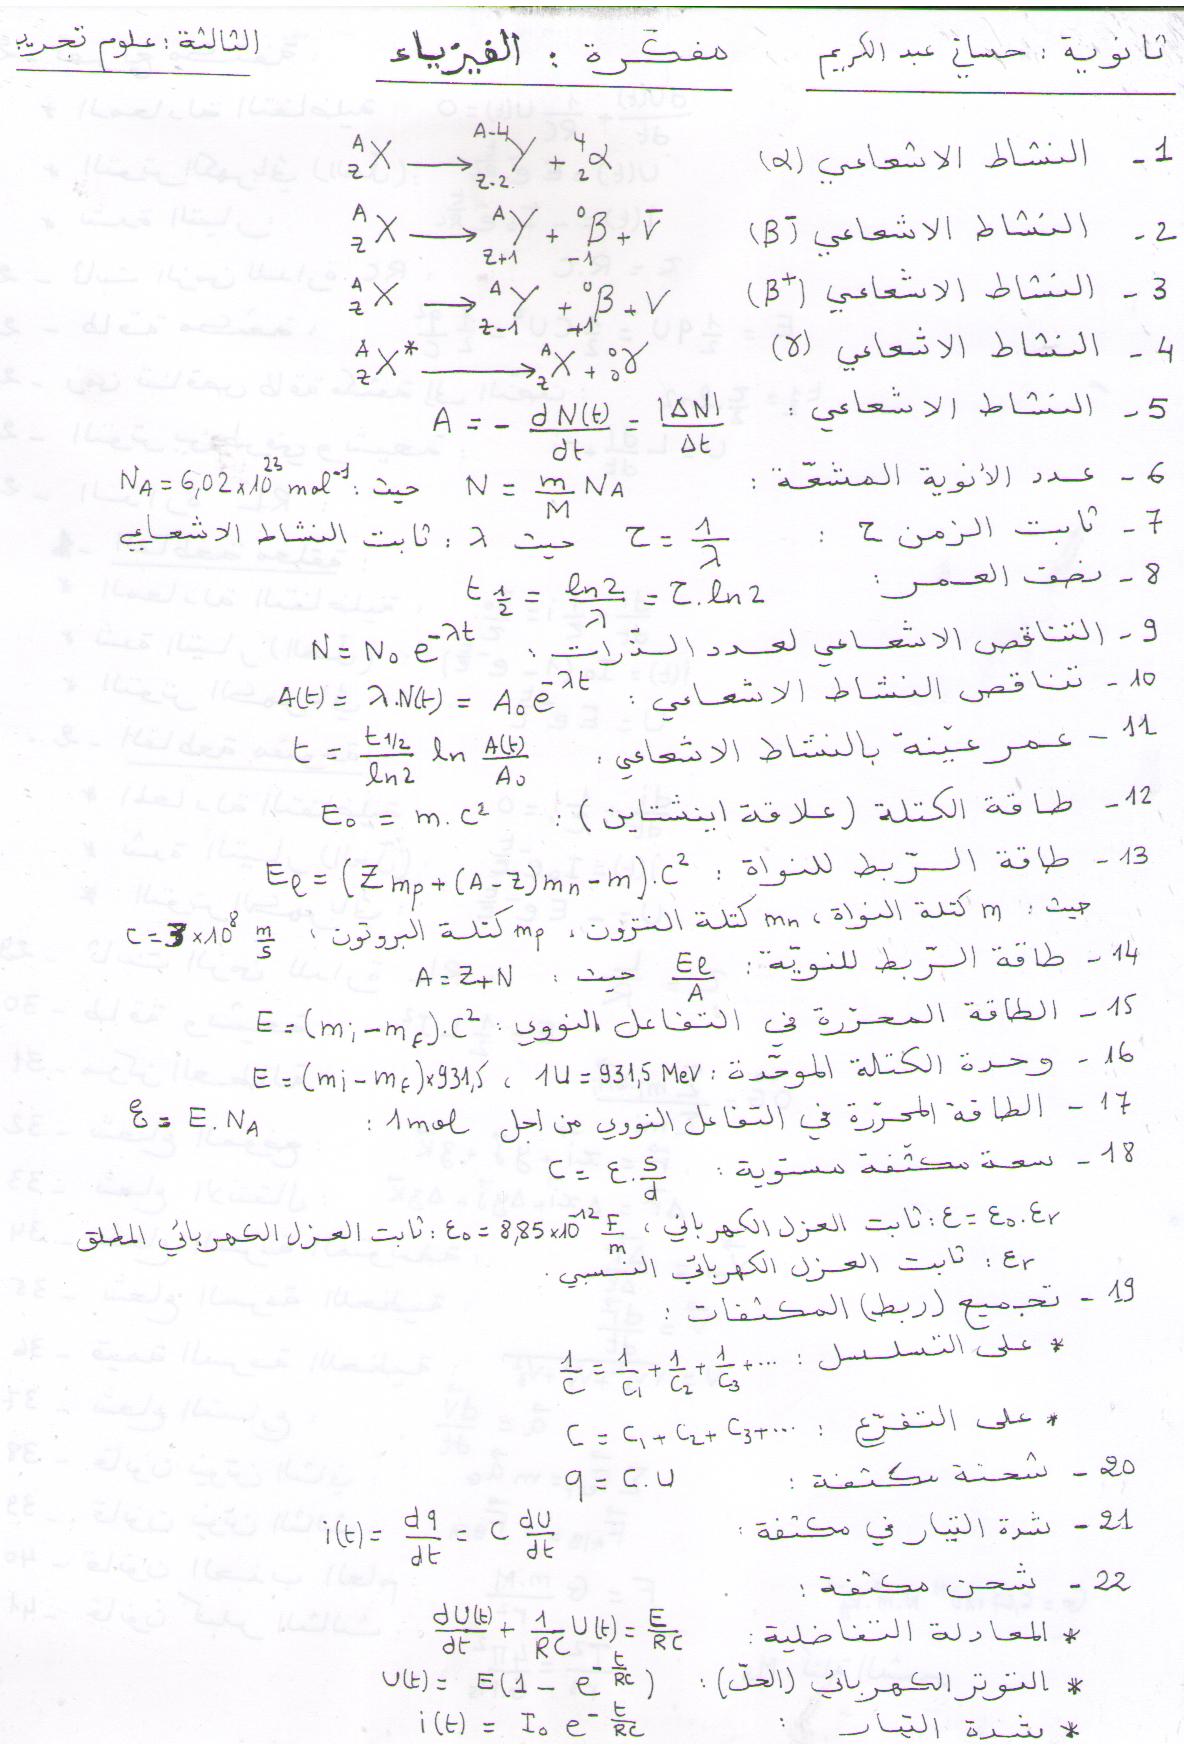 ثانوية : حساني عبد الكريم    مفكرة : الفيزياء    الثالثة : علوم تجريد
1- النشاط الاشعاعي (α)    ᴬ_Z X ⟶ ᴬ⁻⁴_Z-2 Y + ⁴_2 α
2- النشاط الاشعاعي (β⁻)    ᴬ_Z X ⟶ ᴬ_Z+1 Y + ⁰_-1 β + ν̄
3- النشاط الاشعاعي (β⁺)    ᴬ_Z X ⟶ ᴬ_Z-1 Y + ⁰_+1 β + ν
4- النشاط الاشعاعي (γ)    ᴬ_Z X* ⟶ ᴬ_Z X + ⁰_0 γ
5- النشاط الاشعاعي : A = - dN(t)/dt = |ΔN|/Δt
6- عدد الأنوية المشعّة : N = m/M N_A حيث : N_A = 6,02×10²³ mol⁻¹
7- ثابت الزمن τ : τ = 1/λ حيث λ : ثابت النشاط الاشعاعي
8- نصف العمر : t½ = ln2/λ = τ.ln2
9- التناقص الاشعاعي لعدد الذّرات : N = N₀ e^-λt
10- تناقص النشاط الاشعاعي : A(t) = λ.N(t) = A₀ e^-λt
11- عمر عيّنة بالنشاط الاشعاعي : t = t1/2/ln2 ln A(t)/A₀
12- طاقة الكتلة (علاقة اينشتاين) : E₀ = m.c²
13- طاقة الرّبط للنواة : Eℓ = (Z mp + (A-Z) mn - m).c²
حيث : m كتلة النواة ، mn كتلة النترون ، mp كتلة البروتون ، c = 3×10⁸ m/s
14- طاقة الرّبط للنويّة : Eℓ/A حيث : A = Z+N
15- الطاقة المحرّرة في التفاعل النووي : E = (mi - mf).c²
16- وحدة الكتالة الموحّدة : 1U = 931,5 MeV ، E = (mi - mf)×931,5
17- الطاقة المحرّرة في التفاعل النووي من اجل 1mol : ξ = E.N_A
18- سعة مكثّفة مستوية : C = ε.s/d
ε = ε₀.εr : ثابت العزل الكهربائي ، ε₀ = 8,85×10⁻¹² F/m : ثابت العزل الكهربائي المطلق
εr : ثابت العزل الكهربائي النسبي .
19- تجميع (ربط) المكثفات :
* على التسلسل : 1/C = 1/C₁ + 1/C₂ + 1/C₃ + ...
* على التفرّع : C = C₁ + C₂ + C₃ + ...
20- شحنة مكثفة : q = C.U
21- شدة التيار في مكثفة : i(t) = dq/dt = C dU/dt
22- شحن مكثفة :
* المعادلة التفاضلية : dU(t)/dt + 1/RC U(t) = E/RC
* التوتر الكهربائي (الحلّ) : U(t) = E(1 - e^-t/RC)
* شدة التيار : i(t) = I₀ e^-t/RC